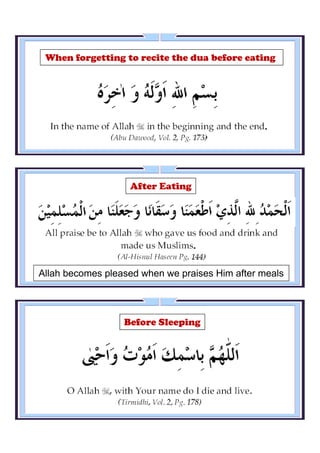 When forgetting to recite the dua before eating
بِسْمِ اللهِ اَوَّلَهُ وَ اٰخِرَهُ
In the name of Allah ﷻ in the beginning and the end.
(Abu Dawood, Vol. 2, Pg. 173)
After Eating
اَلْحَمْدُ لِلّٰهِ الَّذِيْ اَطْعَمَنَا وَسَقَانَا وَجَعَلَنَا مِنَ الْمُسْلِمِيْنَ
All praise be to Allah ﷻ who gave us food and drink and
made us Muslims.
(Al-Hisnul Haseen Pg. 144)
Allah becomes pleased when we praises Him after meals
Before Sleeping
اَللّٰهُمَّ بِاسْمِكَ اَمُوْتُ وَاَحْيٰى
O Allah ﷻ, with Your name do I die and live.
(Tirmidhi, Vol. 2, Pg. 178)